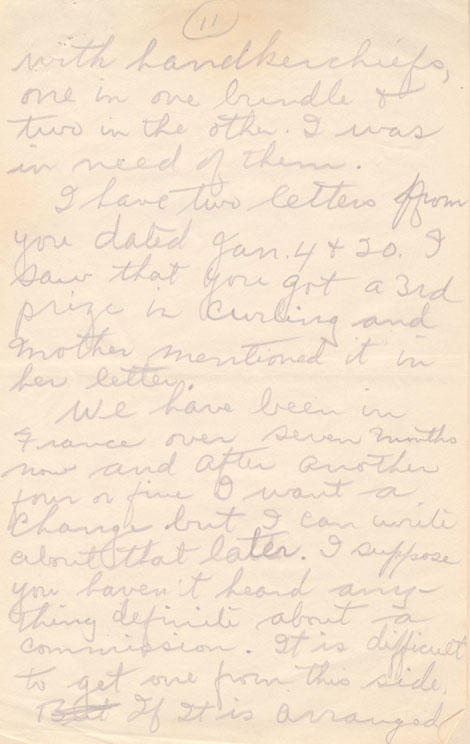 11
with handkerchiefs,
one in one bundle &
two in the other. I was
in need of them.
I have two letters from
you dated Jan. 4 & 20. I
saw that you got a 3rd
prize in Curling and
Mother mentioned it in
her letter.
We have been in
France over seven months
now and after another
four or five I want a
change but I can write
about that later. I suppose
you haven't heard any-
thing definite about a
commission. It is difficult
to get one from this side.
But If it is arranged